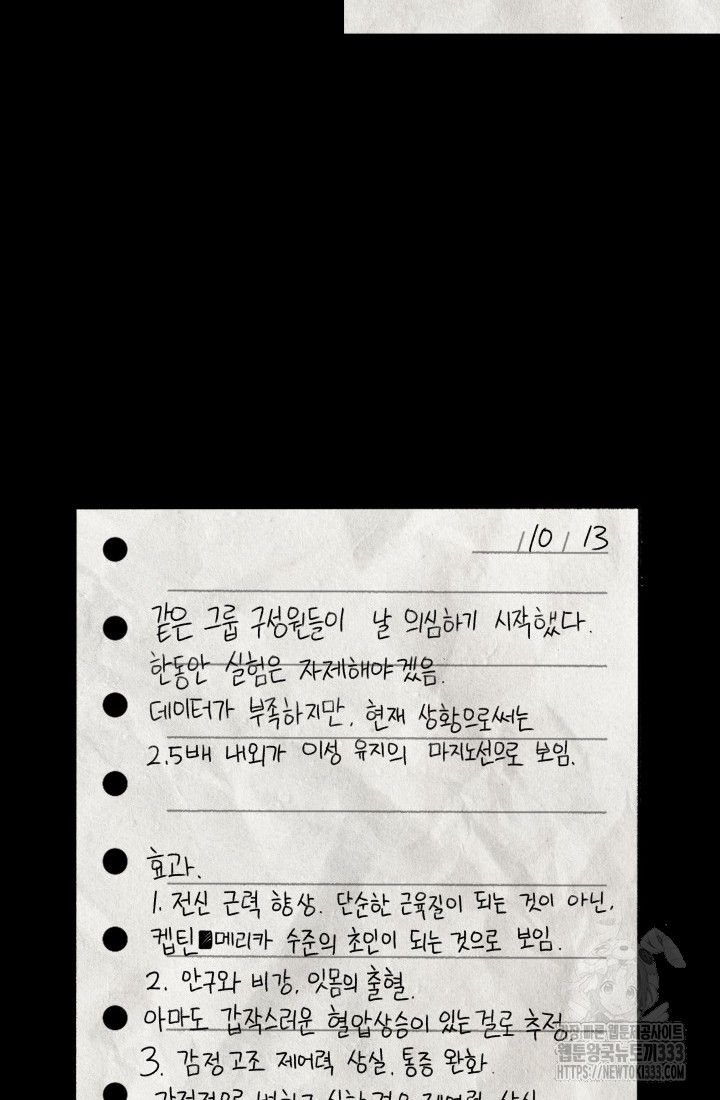 /10/13
같은 그룹 구성원들이 날 의심하기 시작했다.
한동안 실험은 자제해야겠음.
데이터가 부족하지만, 현재 상황으로써는
2.5배 내외가 이성 유지의 마지노선으로 보임.
효과.
1. 전신 근력 향상. 단순한 근육질이 되는 것이 아닌,
켑틴■메리카 수준의 초인이 되는 것으로 보임.
2. 안구와 비강, 잇몸의 출혈.
아마도 갑작스러운 혈압상승이 있는걸로 추정
3. 감정고조 제어력 상실, 통증 완화.
가장 빠른 웹툰제공사이트
웹툰왕국뉴토끼333
HTTPS://NEWTOKI333.COM